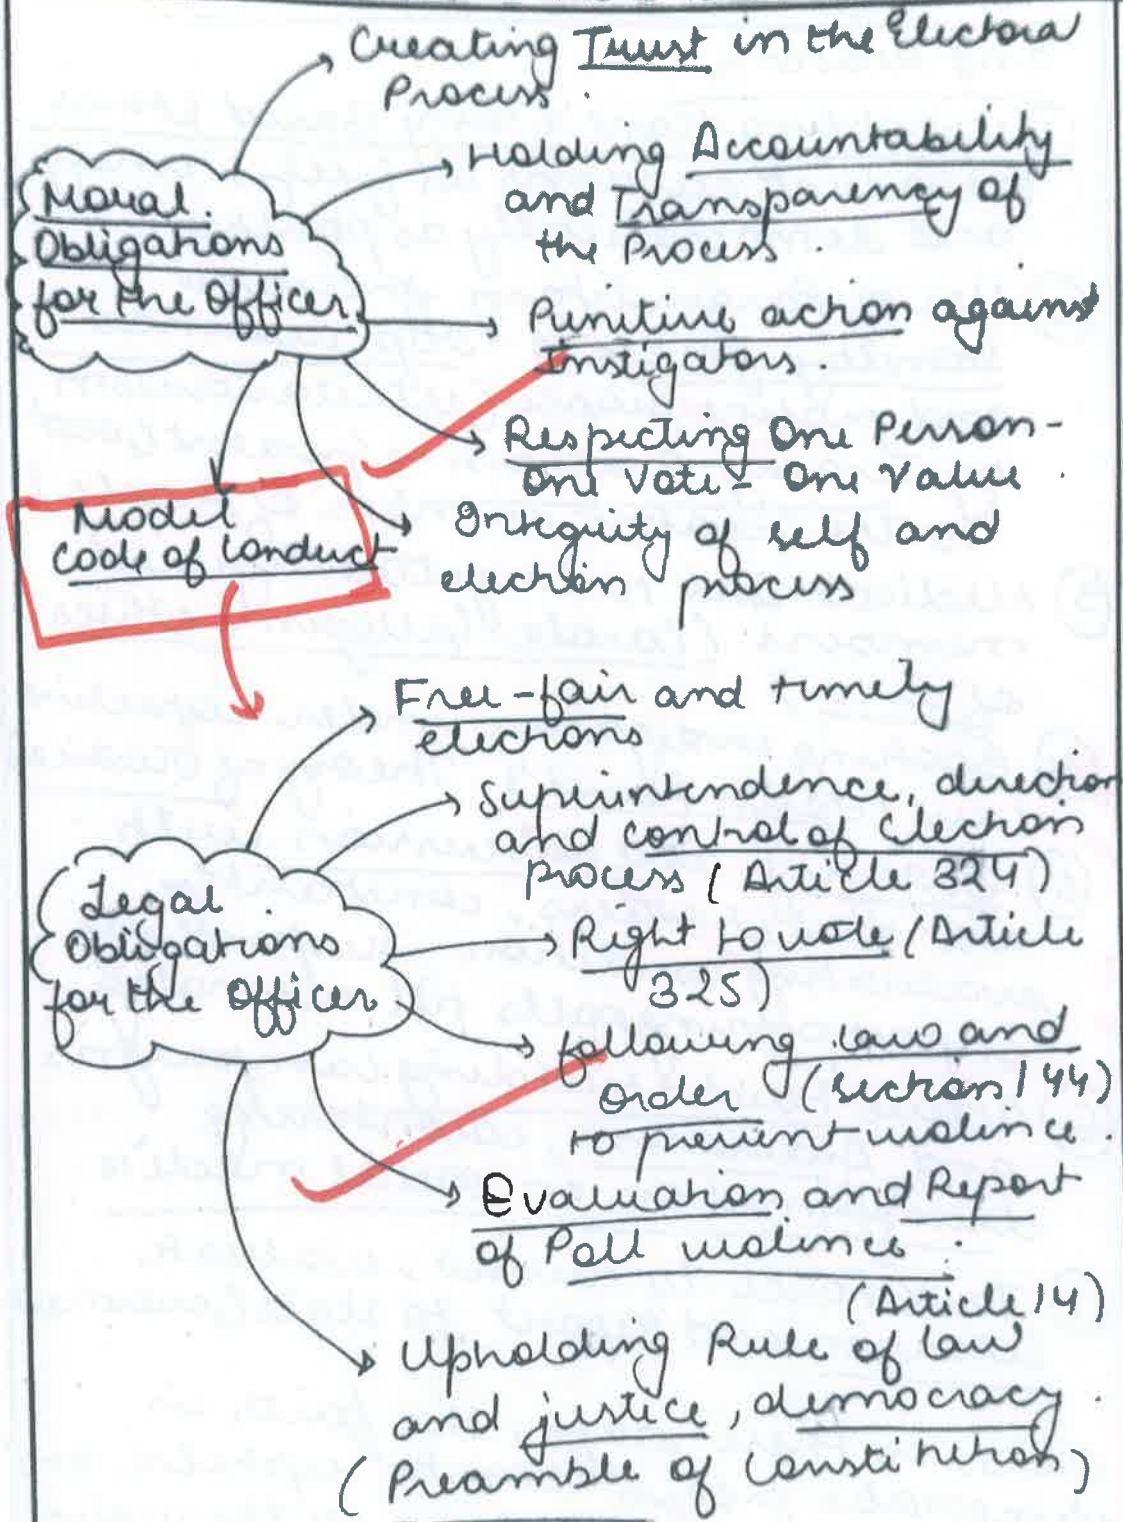 Creating Trust in the Electora
Process.
Moral
Obligations
for the Officer
Holding Accountability
and Transparency of
the Process.
Punitive action against
Instigators.
Respecting One Person-
One Vote - One Value.
Integrity of self and
election process
Model
Code of Conduct
Free-fair and timely
elections
Superintendence, direction
and control of Election
process (Article 324)
Legal
Obligations
for the Officer
Right to vote (Article
325)
following law and
order (section 144)
to prevent violence.
Evaluation and Report
of Poll violence.
(Article 14)
Upholding Rule of law
and justice, democracy.
(Preamble of Constitution)